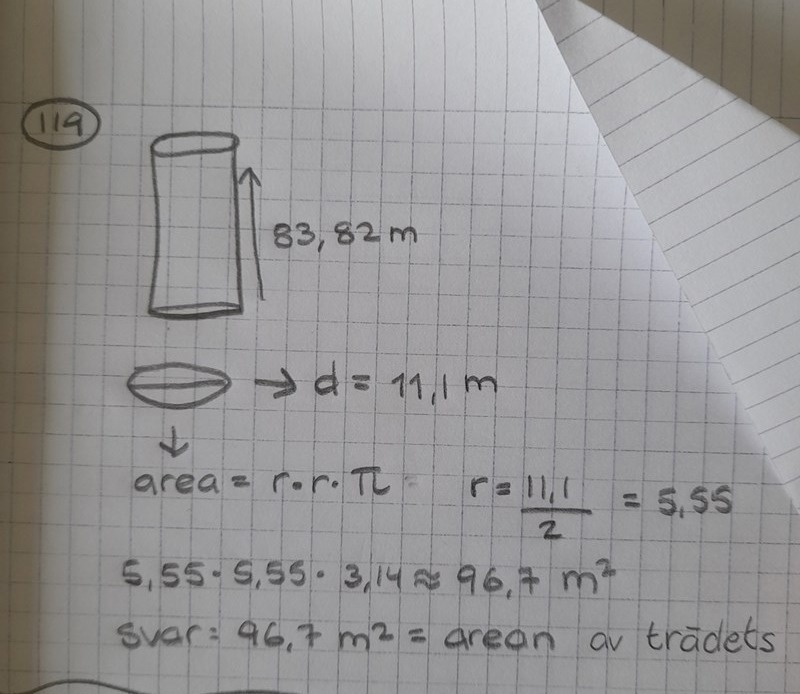 119
83,82 m
→ d = 11,1 m
area = r·r·π r = 11,1/2 = 5,55
5,55 · 5,55 · 3,14 ≈ 96,7 m²
svar: 96,7 m² = arean av trädets